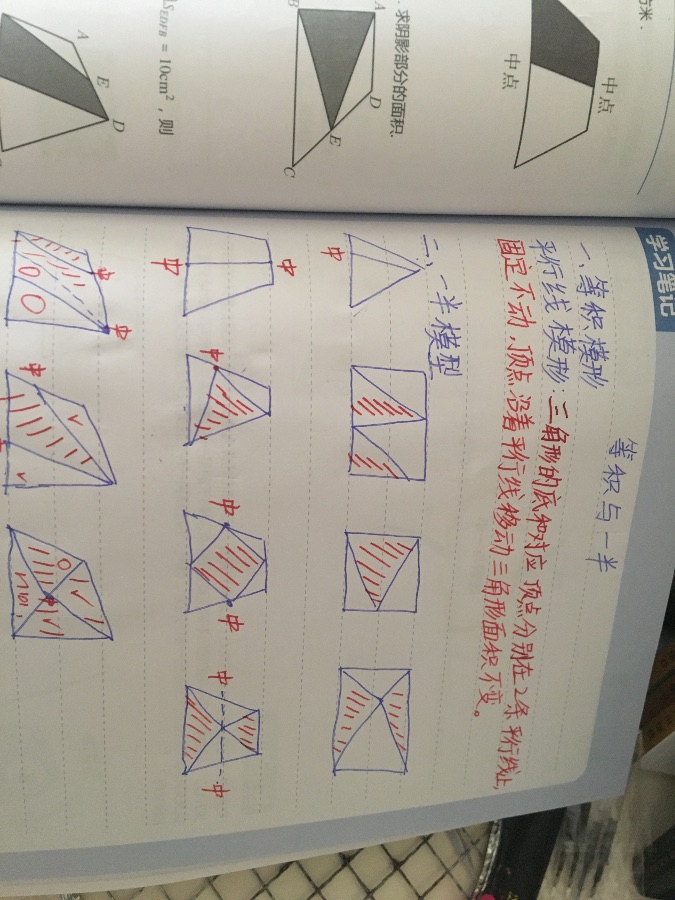 方米.
中点
中点
求阴影部分的面积.
A
B
D
E
C
S_{EDFB} = 10cm²，则
A
E
D
学习笔记
等积与一半
一、等积模形
平行线模形：三角形的底和对应顶点分别在2条平行线上，
固定不动，顶点沿着平行线移动三角形面积不变。
二、一半模型
中
中
中
中
中
中
中
中
中
中
中